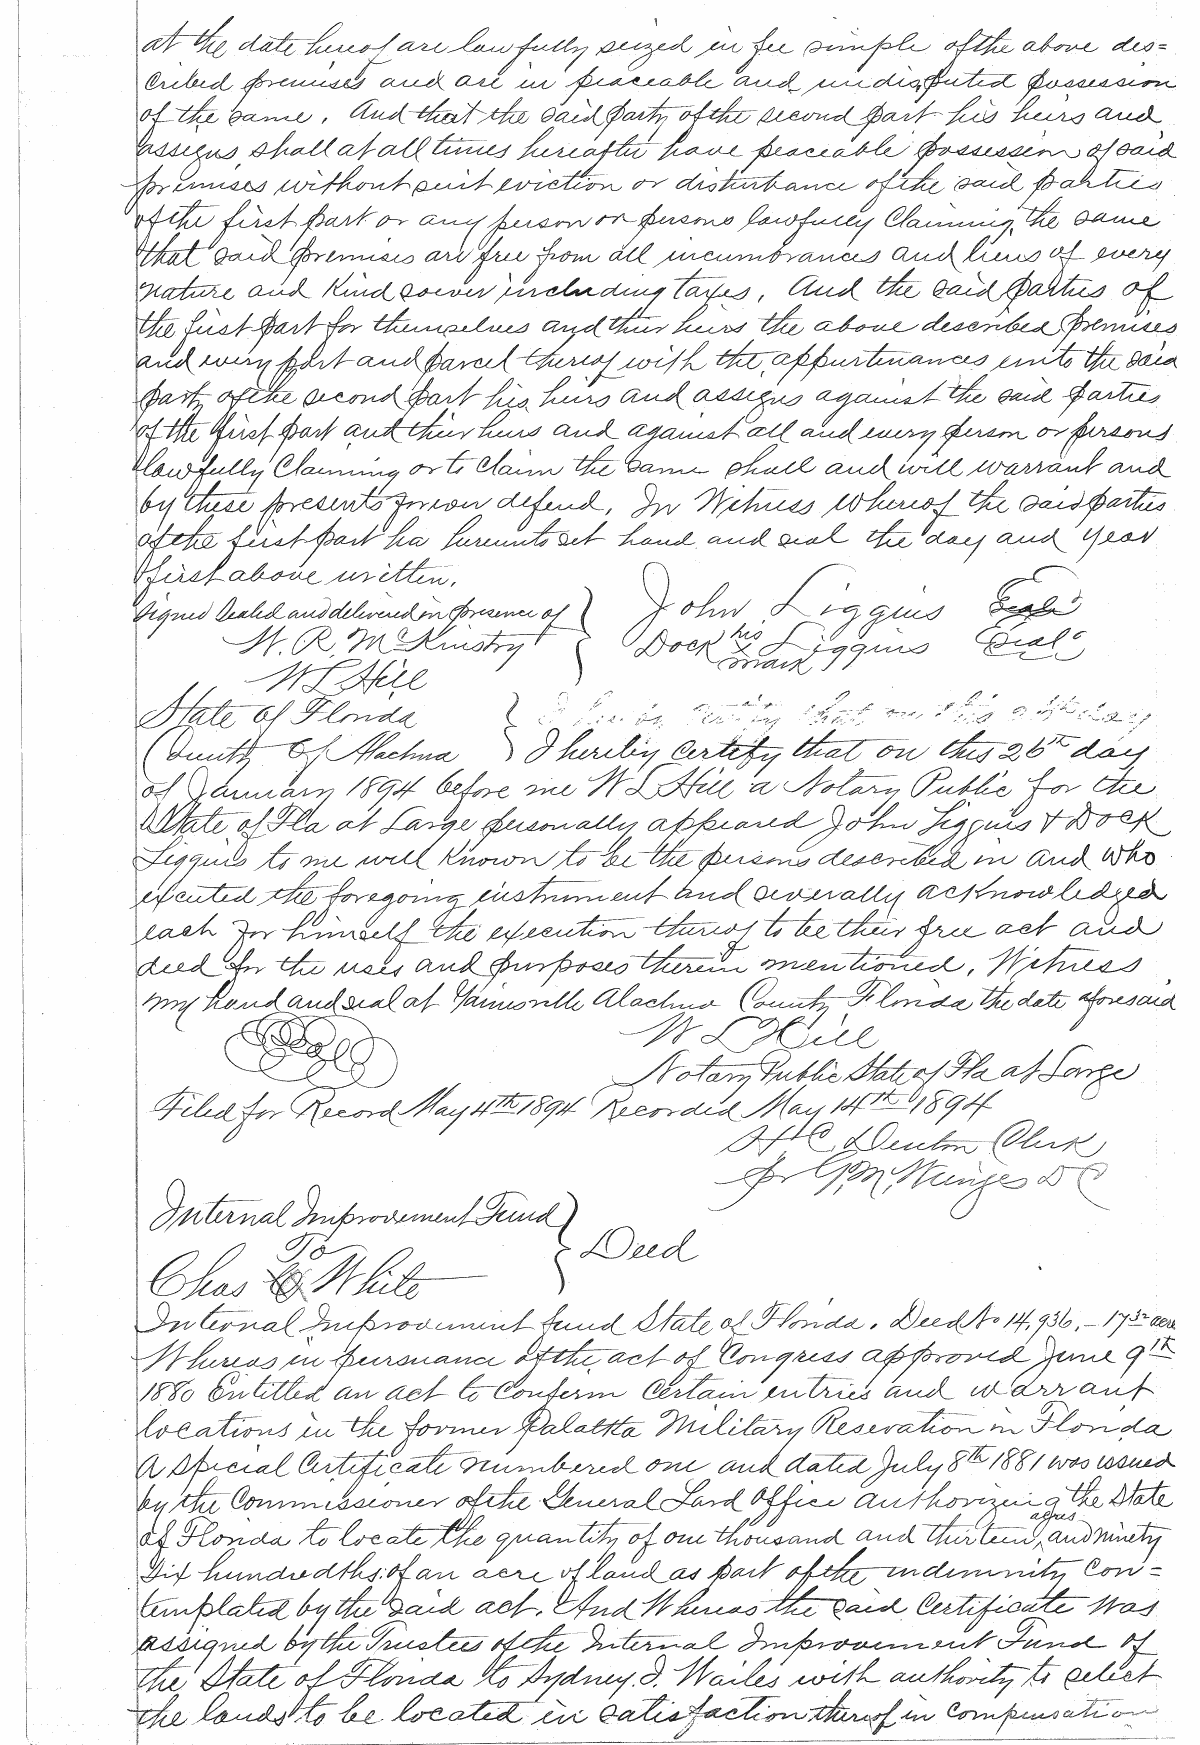 at the date hereof are lawfully seized in fee simple of the above des=
cribed premises and are in peaceable and undisputed possession
of the same. And that the said party of the second part his heirs and
assigns shall at all times hereafter have peaceable possession of said
premises without suit eviction or disturbance of the said parties
of the first part or any person or persons lawfully Claiming the same
that said premises are free from all incumbrances and liens of every
nature and Kind soever including taxes. And the said parties of
the first part for themselves and their heirs the above described premises
and every part and parcel thereof with the appurtenances unto the said
party of the second part his heirs and assigns against the said parties
of the first part and their heirs and against all and every person or persons
lawfully Claiming or to Claim the same shall and will warrant and
by these presents forever defend. In Witness Whereof the said parties
of the first part ha hereunto set hand and seal the day and year
first above written.
Signed Sealed and delivered in presence of } John Liggins Seal
W. R. McKinstry Dock his x mark Liggins Seal
W L Hill
State of Florida } I hereby certify that on this 26th day
County Of Alachua } I hereby certify that on this 26th day
of January 1894 before me W L Hill a Notary Public for the
State of Fla at Large personally appeared John Liggins & Dock
Liggins to me well Known to be the persons described in and who
excuted the foregoing instrument and severally acknowledged
each for himself the execution thereof to be their free act and
deed for the uses and purposes therein mentioned. Witness
my hand and seal at Gainesville Alachua County Florida the date aforesaid
Seal W L Hill
Notary Public State of Fla at Large
Filed for Record May 4th 1894 Recorded May 14th 1894
H C Denton Clerk
pr G. M. D C
Internal Improvement Fund }
To } Deed
Chas White
Internal Improvement fund State of Florida. Deed No 14,936, - 17 32 acres
Whereas in pursuance of the act of Congress approved June 9th
1880 Entitled an act to Confirm Certain entries and warrant
locations in the former Palatka Military Reservation in Florida
A Special Certificate numbered one and dated July 8th 1881 was issued
by the Commissioner of the General Land Office authorizing the State
of Florida to locate the quantity of one thousand and thirteen acres and ninety
Six hundredths of an acre of land as part of the indemnity Con=
templated by the said act. And Whereas the said Certificate was
assigned by the Trustees of the Internal Improvement Fund of
the State of Florida to Sydney I. Wailes with authority to select
the lands to be located in satisfaction thereof in Compensation